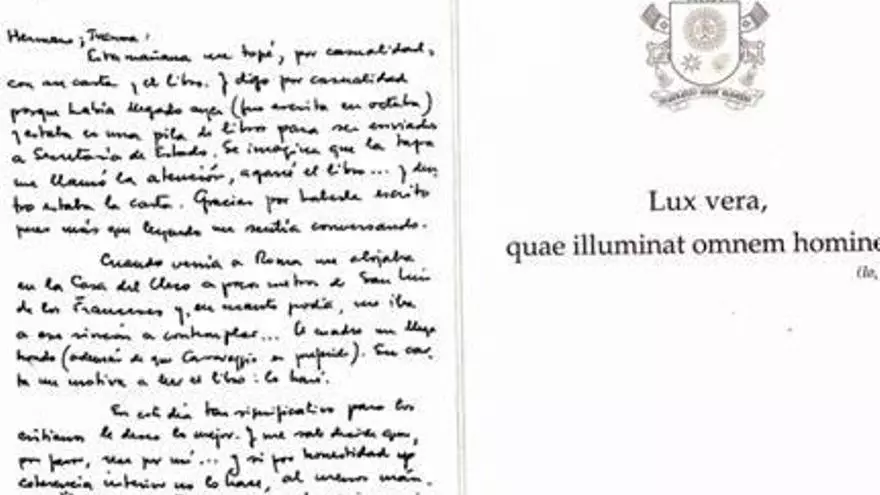 Esta mañana me topé, por casualidad,
con su carta y el libro. Y digo por casualidad
porque había llegado ayer (fue escrita en octubre)
y estaba en una pila de libros para ser enviados
a Secretaría de Estado. Se imagina que la tapa
me llamó la atención, agarré el libro... y den-
tro estaba la carta. Gracias por haberla escrito
pues más que leyendo me sentía conversando.
Cuando venía a Roma me alojaba
en la Casa del Clero a pocos metros de San Luis
de los Franceses y, en cuanto podía, me iba
a ese rincón a contemplar... El cuadro me llega
hondo (además de que Caravaggio es preferido). Su car-
ta me motiva a leer el libro: lo haré.
En este día tan significativo para los
cristianos le deseo lo mejor. Y me sale decirle que,
por favor, rece por mí... y si por honestidad y
coherencia interior no lo hace, al menos
Lux vera,
quae illuminat omnem homine
(Io,